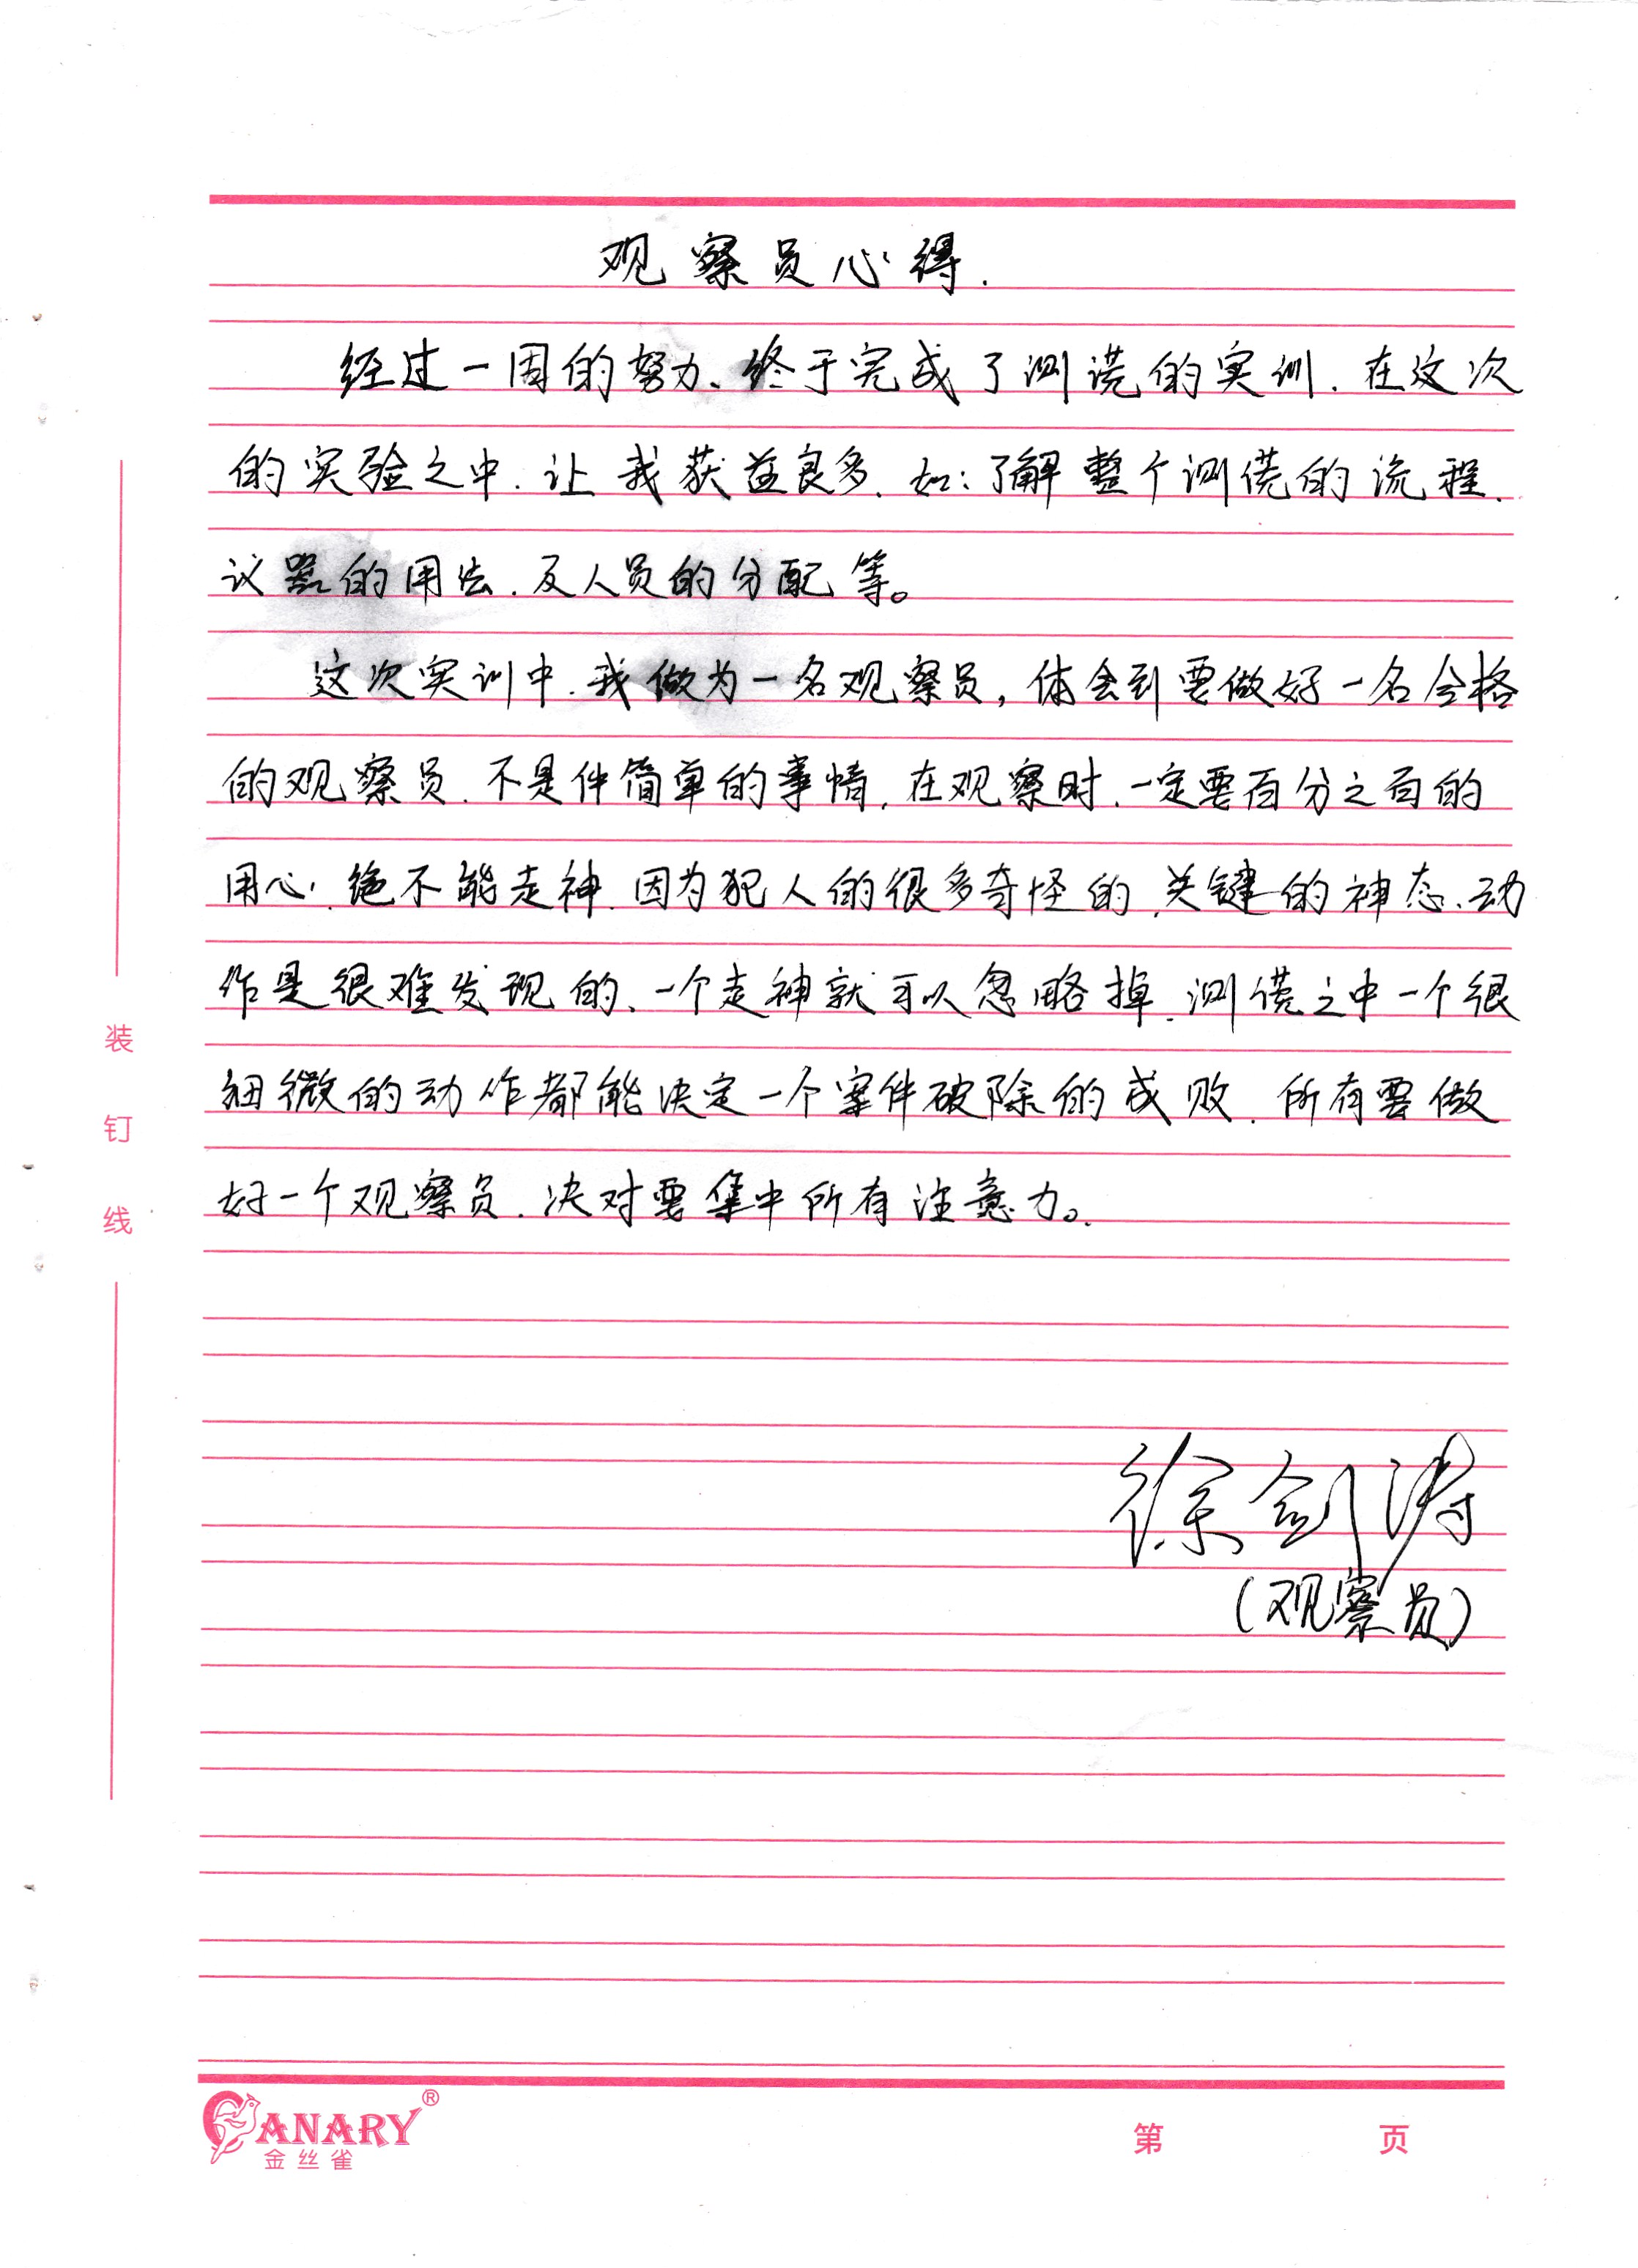 观察员心得.
经过一周的努力、终于完成了测谎的实训.在这次
的实验之中.让我获益良多.如:了解整个测谎的流程.
议器的用法.及人员的分配等。
这次实训中.我做为一名观察员,体会到要做好一名合格
的观察员.不是件简单的事情.在观察时.一定要百分之百的
用心.绝不能走神.因为犯人的很多奇怪的.关键的神态.动
作是很难发现的、一个走神就可以忽略掉.测谎之中一个很
细微的动作都能决定一个案件破除的成败.所有要做
好一个观察员.决对要集中所有注意力。
徐剑涛
(观察员)
装
钉
线
CANARY®
金丝雀
第 页